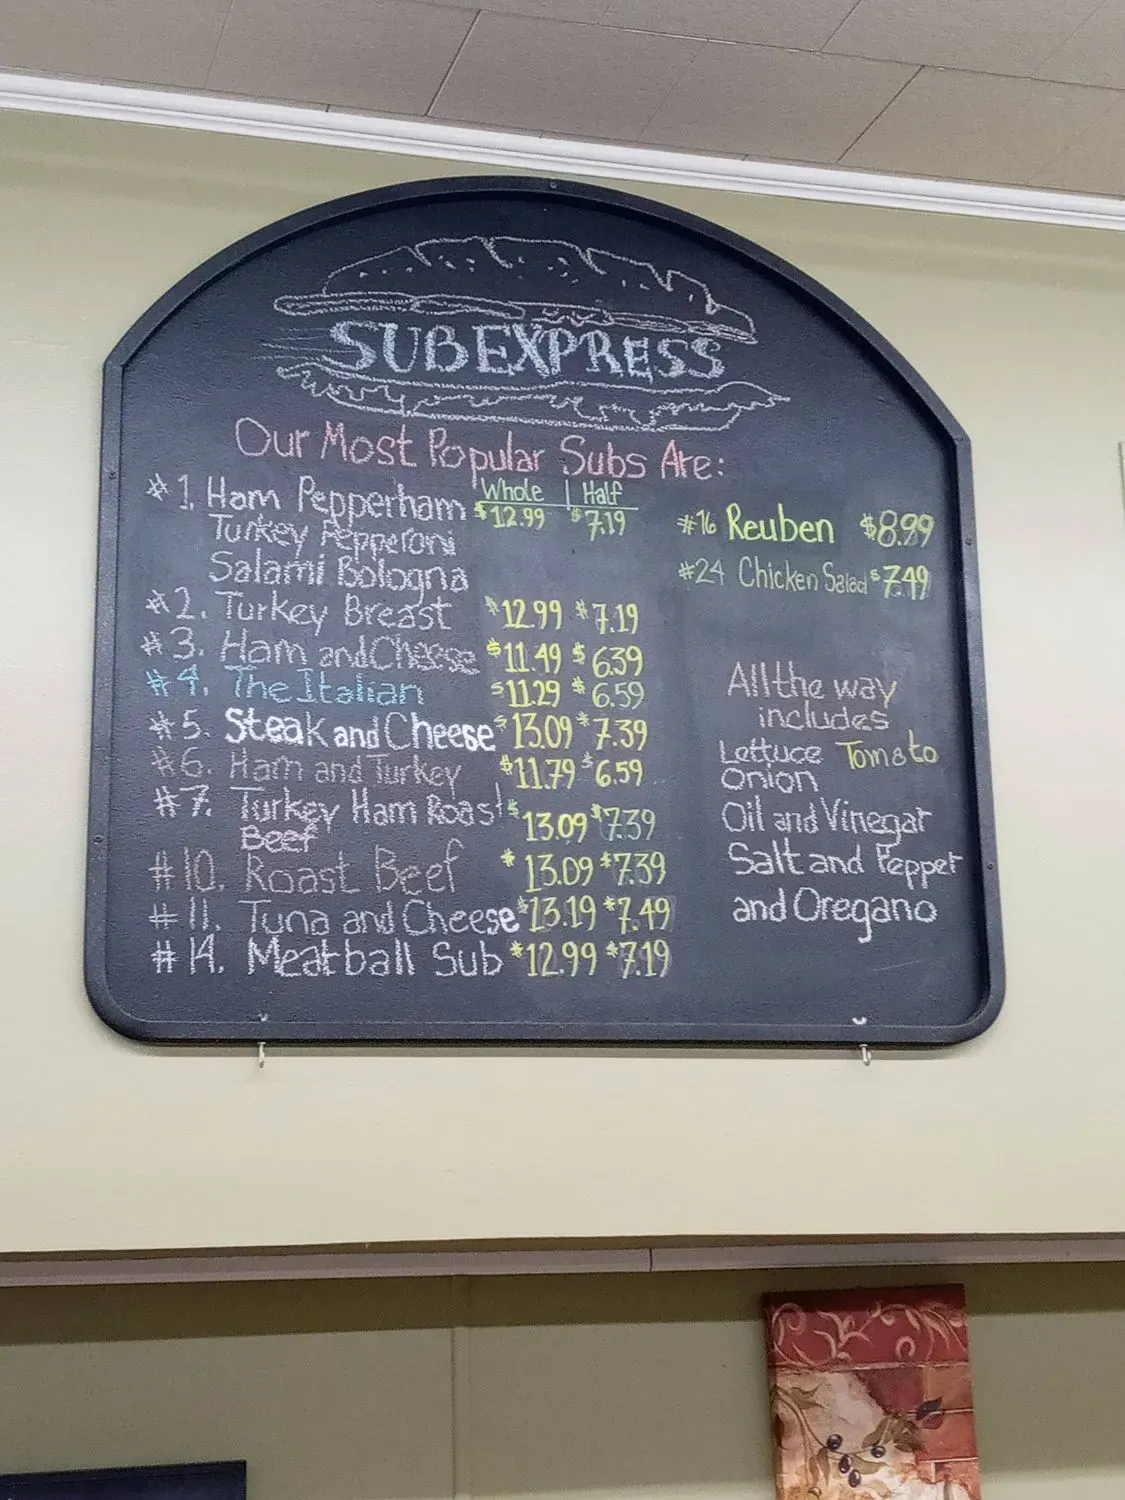 SUB EXPRESS
Our Most Popular Subs Are:
Whole | Half
#1. Ham Pepperham $12.99 $7.19
Turkey Pepperoni
Salami Bologna
#2. Turkey Breast $12.99 $7.19
#3. Ham and Cheese $11.49 $6.39
#4. The Italian $11.29 $6.59
#5. Steak and Cheese $13.09 $7.39
#6. Ham and Turkey $11.79 $6.59
#7. Turkey Ham Roast $13.09 $7.39
Beef
#10. Roast Beef $13.09 $7.39
#11. Tuna and Cheese $13.19 $7.49
#14. Meatball Sub $12.99 $7.19
#16 Reuben $8.99
#24 Chicken Salad $7.49
All the way
includes
Lettuce Tomato
Onion
Oil and Vinegar
Salt and Pepper
and Oregano